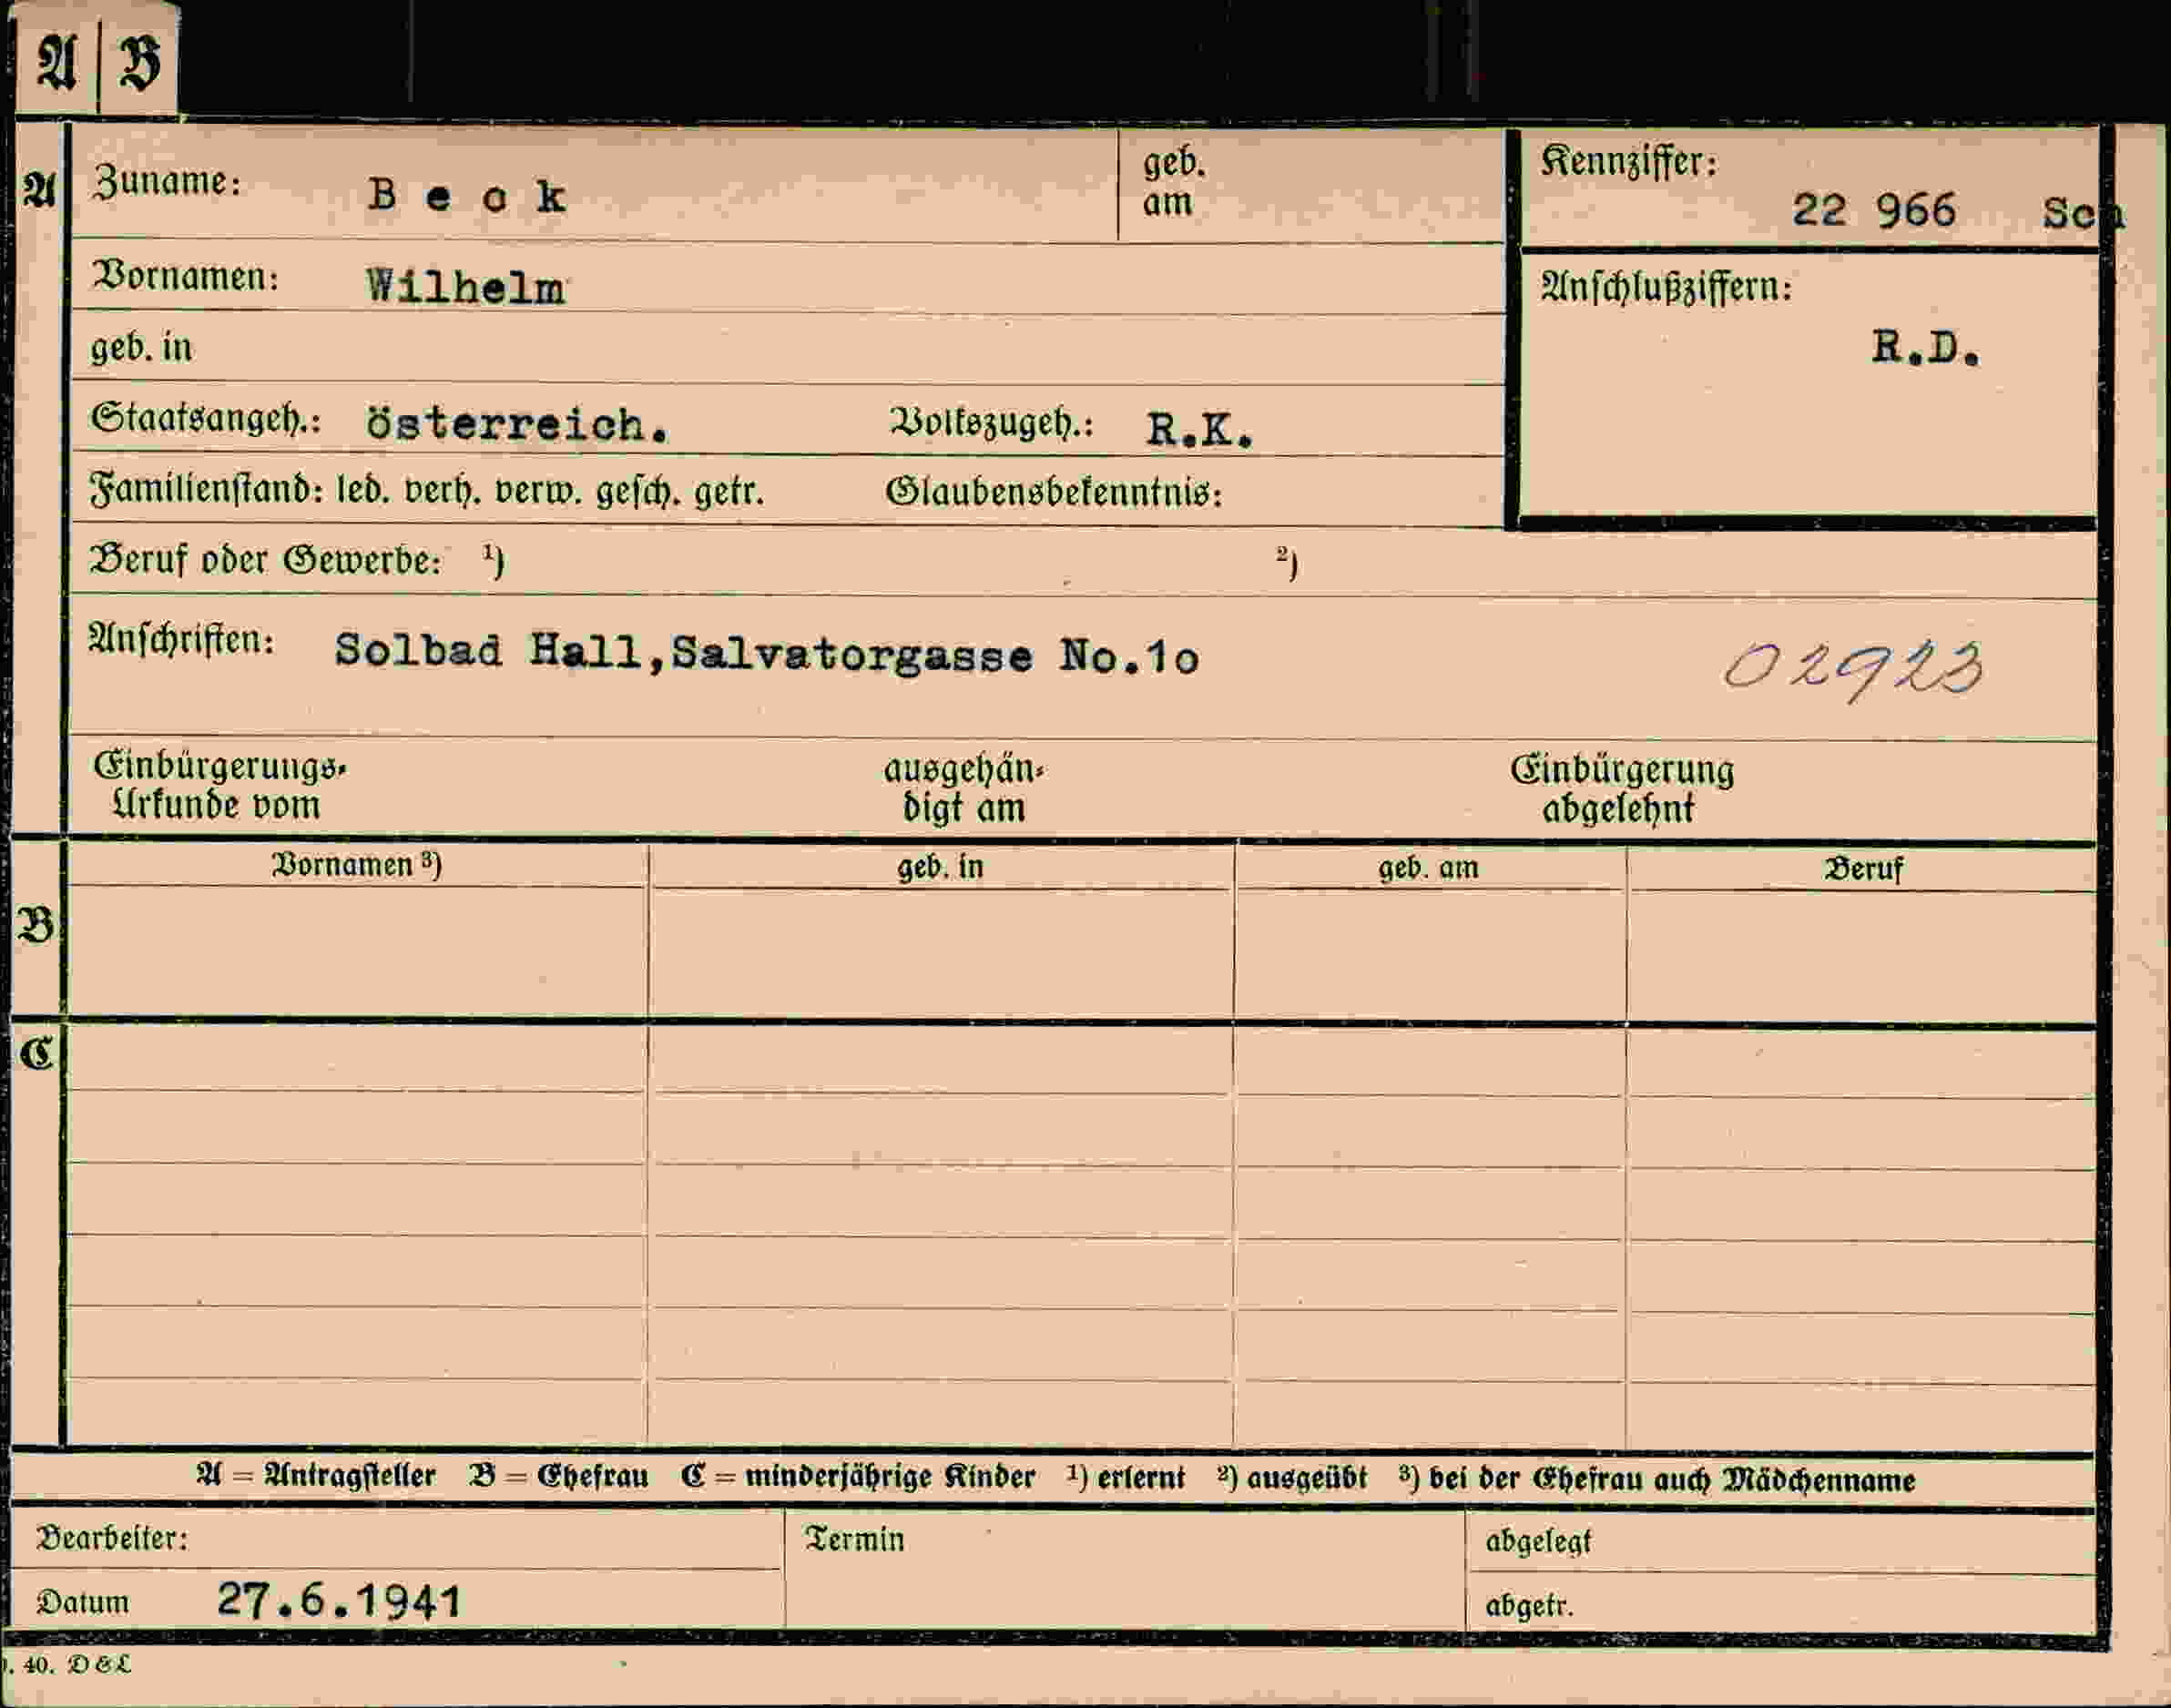 A B
A Zuname: Beck geb. am Kennziffer: 22 966 Sch
Vornamen: Wilhelm Anschlußziffern:
geb. in R.D.
Staatsangeh.: österreich. Volkszugeh.: R.K.
Familienstand: led. verh. verw. gesch. getr. Glaubensbekenntnis:
Beruf oder Gewerbe: ¹) ²)
Anschriften: Solbad Hall,Salvatorgasse No.1o 02923
Einbürgerungs- ausgehän- Einbürgerung
Urkunde vom digt am abgelehnt
Vornamen ³) geb. in geb. am Beruf
B
C
A = Antragsteller B = Ehefrau C = minderjährige Kinder ¹) erlernt ²) ausgeübt ³) bei der Ehefrau auch Mädchenname
Bearbeiter: Termin abgelegt
Datum 27.6.1941 abgetr.
. 40. D & L